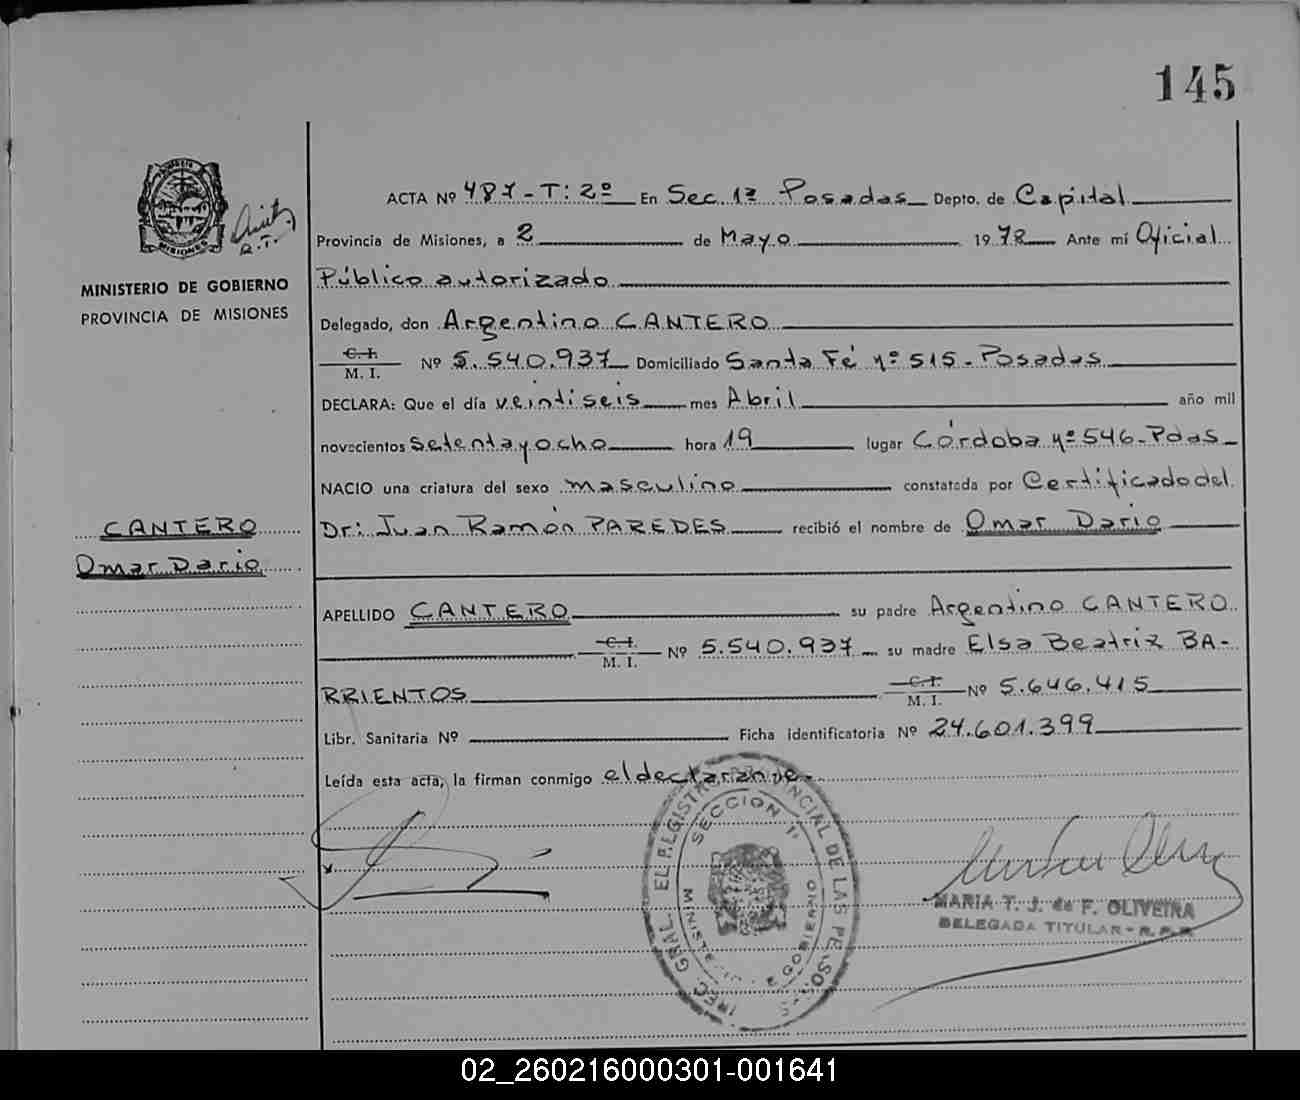 145
MISIONES
R.T.
MINISTERIO DE GOBIERNO
PROVINCIA DE MISIONES
CANTERO
Omar Dario
ACTA Nº 487-T: 2º En Sec. 1ª Posadas Depto. de Capital
Provincia de Misiones, a 2 de Mayo 1978 Ante mí Oficial
Público autorizado
Delegado, don Argentino CANTERO
C. I.
M. I. Nº 5.540.937 Domiciliado Santa Fé nº 515-Posadas
DECLARA: Que el día veintiseis mes Abril año mil
novecientos setentayocho hora 19 lugar Córdoba nº 546-Pdas
NACIO una criatura del sexo masculino constatada por Certificado del
Dr: Juan Ramón PAREDES recibió el nombre de Omar Dario
APELLIDO CANTERO su padre Argentino CANTERO
C. I.
M. I. Nº 5.540.937 su madre Elsa Beatriz BA-
RRIENTOS C. I.
M. I. Nº 5.646.415
Libr. Sanitaria Nº Ficha identificatoria Nº 24.601.399
Leída esta acta, la firman conmigo el declarante.-
GRAL. EL REGISTRO PROVINCIAL DE LAS PERSONAS
SECCION 1ª
MINISTERIO DE GOBIERNO
MARIA T. J. de F. OLIVEIRA
DELEGADA TITULAR - R.P.P.
02_260216000301-001641